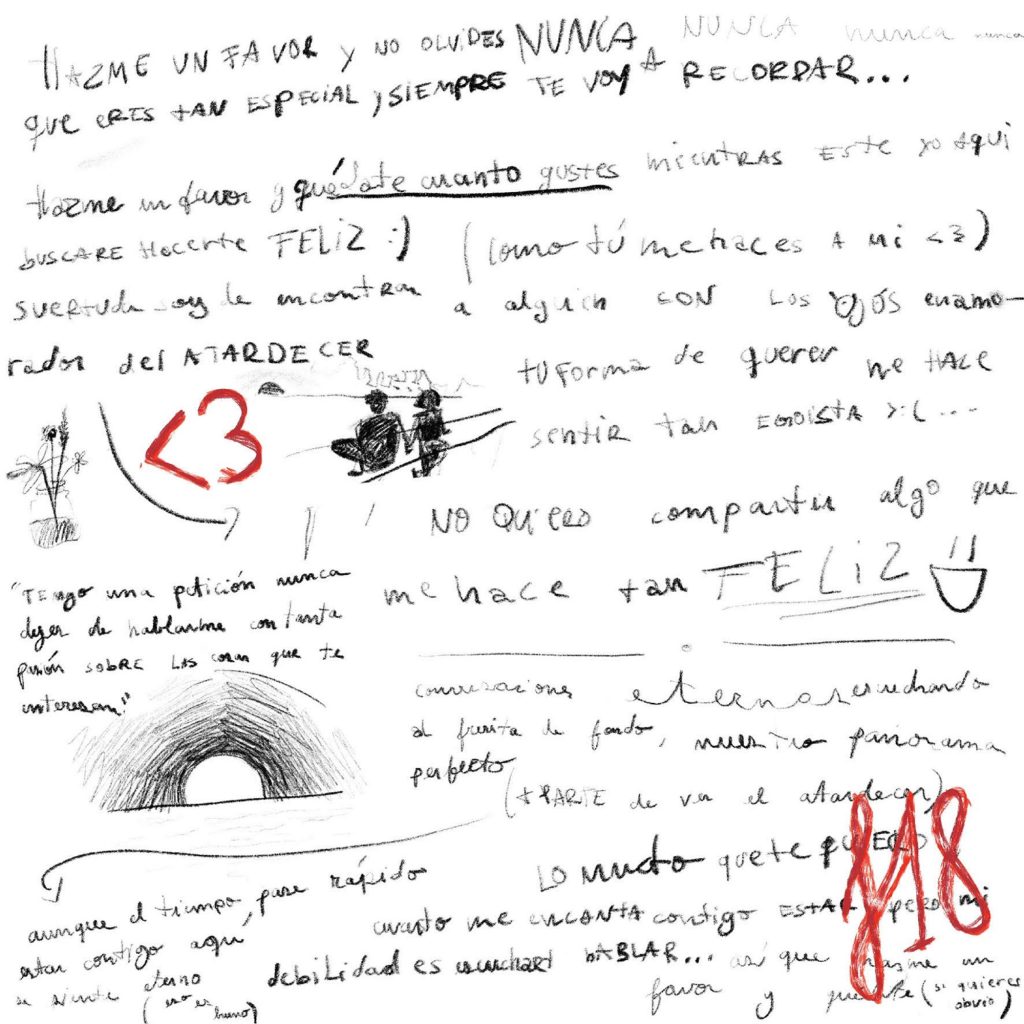 HAZME UN FAVOR Y NO OLVIDES NUNCA NUNCA nunca nunca
que ERES tAN ESPECIAL y SIEMPRE TE VOY A RECORDAR...
Hazme un favor y quédate cuanto gustes mientras Este yo aqui
buscare Hacerte FELIZ :) (como tú me haces A mi <3)
suertuda soy de encontrar a alguien CON LOS OjÓS enamo-
rados del ATARDECER
tu forma de querer me HACE
sentir tan EGOISTA >:( ....
<3
NO QUIERO compartir algo que
me hace tan FELIZ
"TEngo una petición nunca
dejes de hablarme con tanta
pasión SOBRE LAS cosas que te
interesan"
conversaciones eternas escuchando
al de fondo, nuestro panorama
perfecto
(+ PARTE de ver el atardecer)
LO mucho que te quiERO
818
aunque el tiempo pase rápido
estar contigo aquí,
se siente eterno
(eso es bueno)
cuanto me ENCANTA contigo ESTAR pero mi
debilidad es escuchart HABLAR... así que hazme un
favor y quedate (si quieres
obvio)